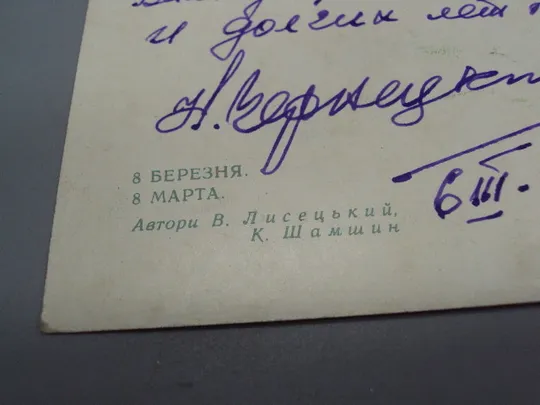 и долгих лет
Н. Чернецк
6 III.
8 БЕРЕЗНЯ.
8 МАРТА.
Автори В. Лисецький,
К. Шамшин